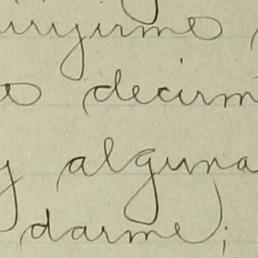 dirijirme
decirm
y alguna
darme;